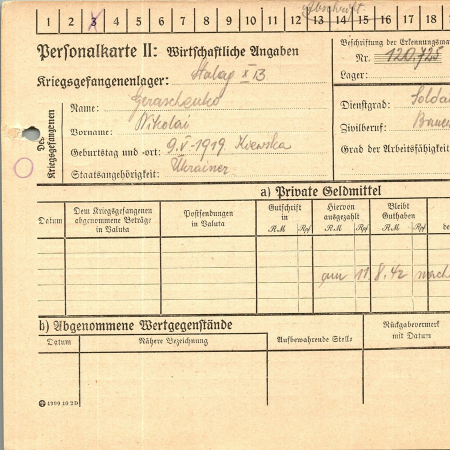 Abschrift.
1 2 3 4 5 6 7 8 9 10 11 12 13 14 15 16 17 18
Personalkarte II: Wirtschaftliche Angaben
Beschriftung der Erkennungsma
Nr. 120725
Kriegsgefangenenlager: Stalag XI B
Lager:
Des Kriegsgefangenen
Name: Geraschenko
Dienstgrad: Soldat
Vorname: Nikolai
Zivilberuf: Bauer
Geburtstag und -ort: 9.V.1919. Kiewska
Grad der Arbeitsfähigkeit
Staatsangehörigkeit: Ukrainer
a) Private Geldmittel
Datum
Dem Kriegsgefangenen abgenommene Beträge in Valuta
Postsendungen in Valuta
Gutschrift in
RM Rpf
Hiervon ausgezahlt
RM Rpf
Bleibt Guthaben
RM Rpf
de
am 11.8.42 nach
b) Abgenommene Wertgegenstände
Datum
Nähere Bezeichnung
Aufbewahrende Stelle
Rückgabevermerk mit Datum
1909 10 2D